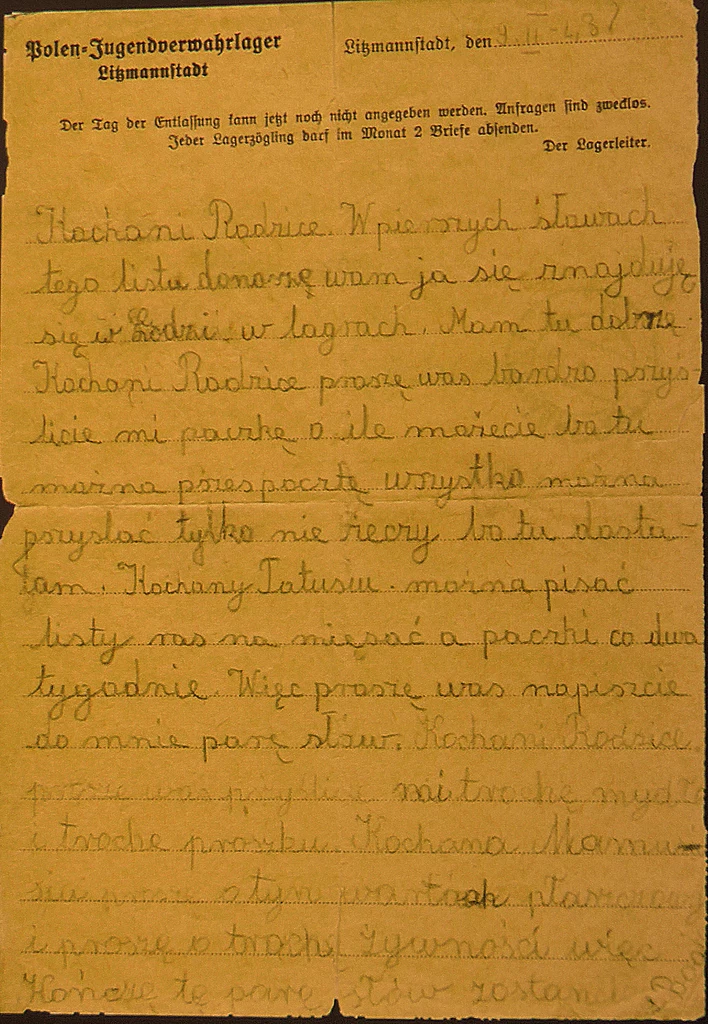 Polen-Jugendverwahrlager
Litzmannstadt
Litzmannstadt, den 9. II
Der Tag der Entlassung kann jetzt noch nicht angegeben werden. Anfragen sind zwecklos.
Jeder Lagerzögling darf im Monat 2 Briefe absenden.
Der Lagerleiter.
Kochani Rodzice. W pierwszych słowach
tego listu donoszę wam ja się znajduję
się w Łodzi w lagrach. Mam tu dobrze
Kochani Rodzice proszę was bardzo przyś-
licie mi paczkę o ile możecie bo tu
można przespocztę wszystko można
przysłać tylko nie rzeczy bo tu dosta-
łam. Kochany Tatusiu. można pisać
listy ras na mięsać a paczki co dwa
tygodnie. Więc proszę was napiszcie
do mnie parę słów. Kochani Rodzice
proszę was przyślicie mi trochę mydła
i trochę proszku. Kochana Mamu-
siu proszę o tym
i proszę o trochę żywności więc
Kończę tę parę słów